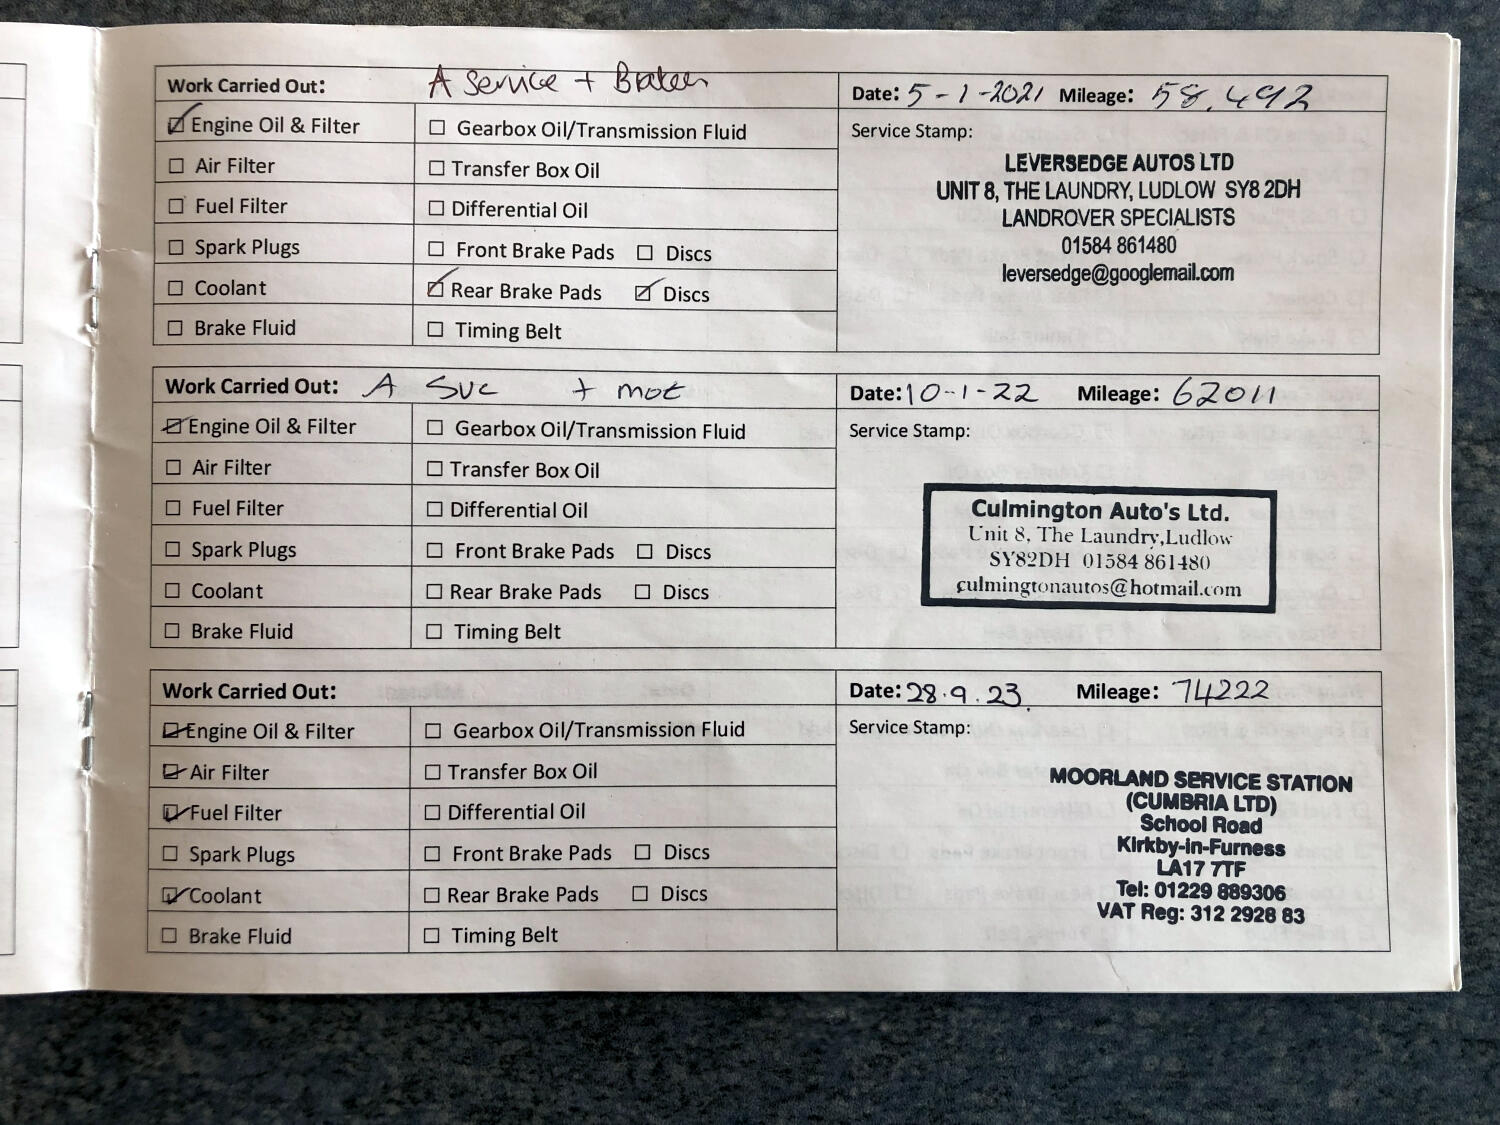 Work Carried Out: A Service + Brakes
Date: 5-1-2021 Mileage: 58,492
☑ Engine Oil & Filter ☐ Gearbox Oil/Transmission Fluid
Service Stamp:
☐ Air Filter ☐ Transfer Box Oil
☐ Fuel Filter ☐ Differential Oil
☐ Spark Plugs ☐ Front Brake Pads ☐ Discs
☐ Coolant ☑ Rear Brake Pads ☑ Discs
☐ Brake Fluid ☐ Timing Belt
LEVERSEDGE AUTOS LTD
UNIT 8, THE LAUNDRY, LUDLOW SY8 2DH
LANDROVER SPECIALISTS
01584 861480
leversedge@googlemail.com
Work Carried Out: A SVC + mot
Date: 10-1-22 Mileage: 62011
☑ Engine Oil & Filter ☐ Gearbox Oil/Transmission Fluid
Service Stamp:
☐ Air Filter ☐ Transfer Box Oil
☐ Fuel Filter ☐ Differential Oil
☐ Spark Plugs ☐ Front Brake Pads ☐ Discs
☐ Coolant ☐ Rear Brake Pads ☐ Discs
☐ Brake Fluid ☐ Timing Belt
Culmington Auto's Ltd.
Unit 8, The Laundry,Ludlow
SY82DH 01584 861480
culmingtonautos@hotmail.com
Work Carried Out:
Date: 28.9.23. Mileage: 74222
☑ Engine Oil & Filter ☐ Gearbox Oil/Transmission Fluid
Service Stamp:
☑ Air Filter ☐ Transfer Box Oil
☑ Fuel Filter ☐ Differential Oil
☐ Spark Plugs ☐ Front Brake Pads ☐ Discs
☑ Coolant ☐ Rear Brake Pads ☐ Discs
☐ Brake Fluid ☐ Timing Belt
MOORLAND SERVICE STATION
(CUMBRIA LTD)
School Road
Kirkby-in-Furness
LA17 7TF
Tel: 01229 889306
VAT Reg: 312 2928 83